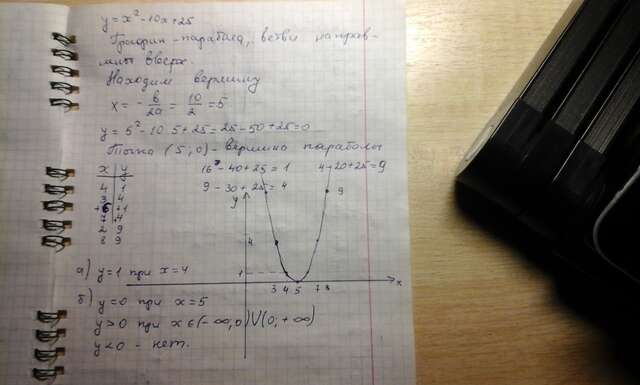 y = x² - 10x + 25
График - парабола, ветви направ-
лены вверх
Находим вершину
x = - b/2a = 10/2 = 5
y = 5² - 10·5 + 25 = 25 - 50 + 25 = 0
Точка (5; 0) - вершина параболы
x | y
4 | 1
3 | 4
2 | 9
8 | 9
16 - 40 + 25 = 1
9 - 30 + 25 = 4
4 - 20 + 25 = 9
y
9
4
1
3 4 5
x
а) y = 1 при x = 4
б) y = 0 при x = 5
y > 0 при x ∈ (-∞; 0) V (0; +∞)
y < 0 - нет.